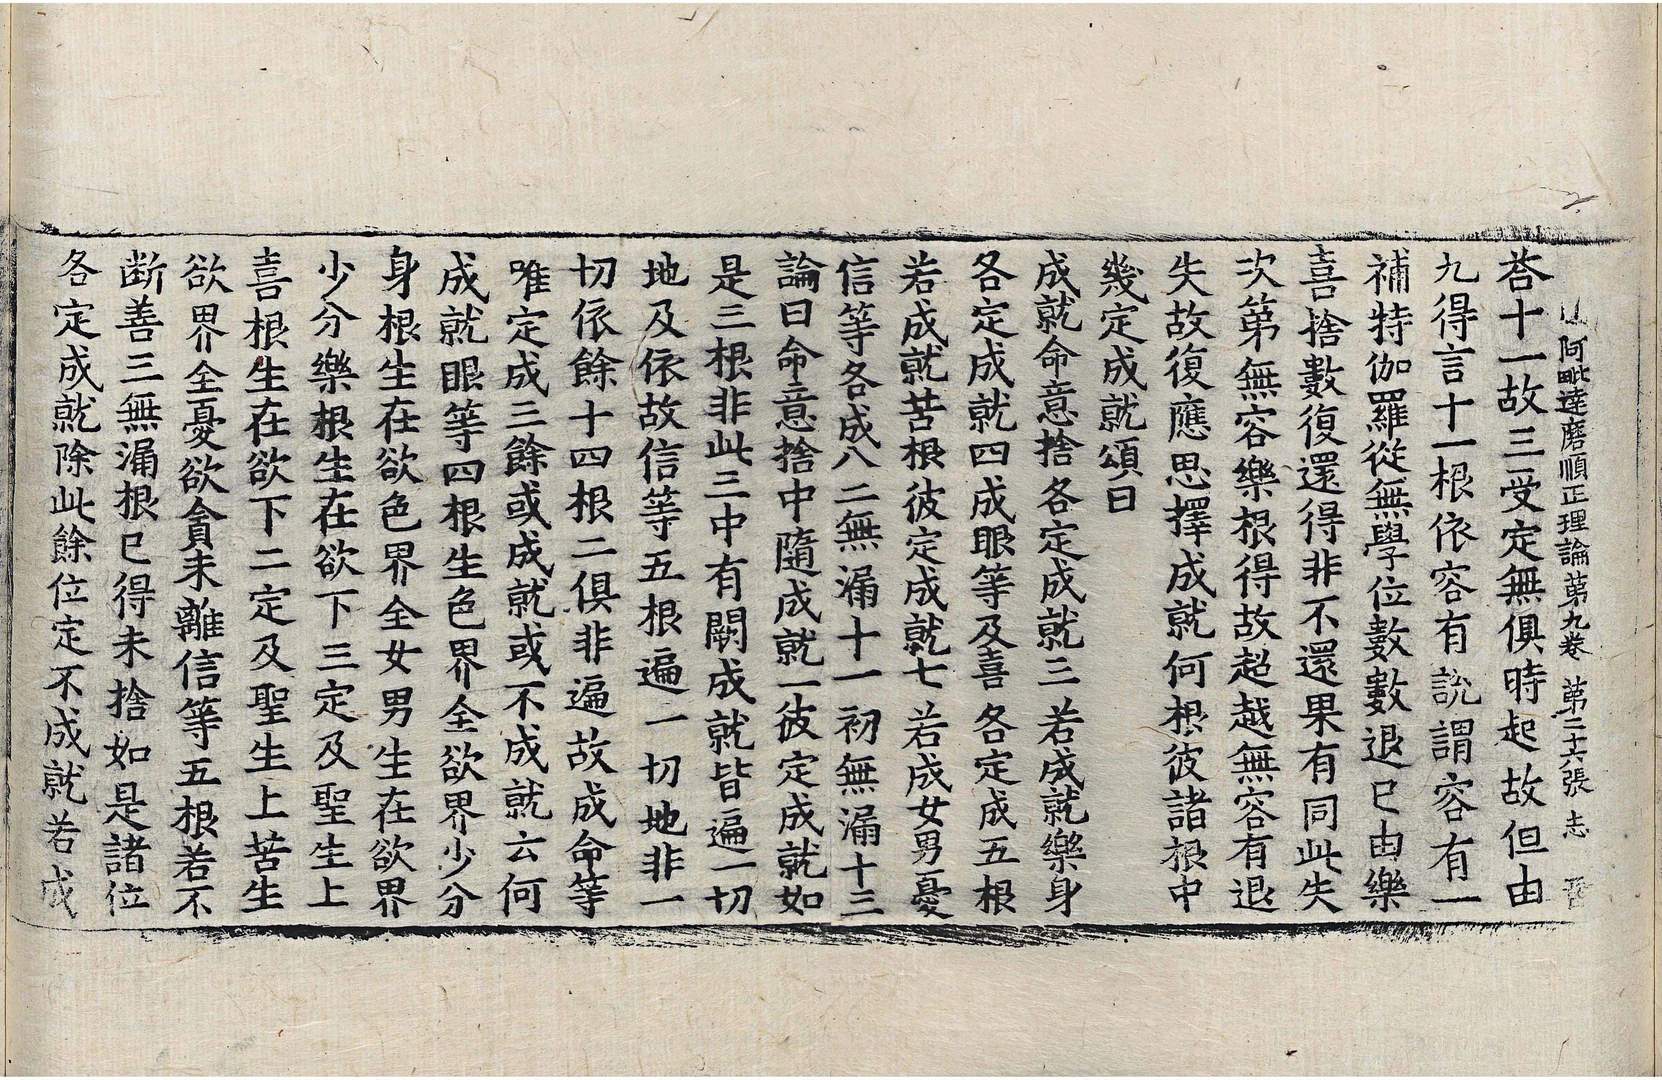 阿毗達磨順正理論第九卷 第二十六張 志
荅十一故三受定無俱時起故但由
九得言十一根依容有說謂容有一
補特伽羅從無學位數數退已由樂
喜捨數復還得非不還果有同此失
次第無容樂根得故超越無容有退
失故復應思擇成就何根彼諸根中
幾定成就頌曰
成就命意捨各定成就三若成就樂身
各定成就四成眼等及喜各定成五根
若成就苦根彼定成就七若成女男憂
信等各成八二無漏十一初無漏十三
論曰命意捨中隨成就一彼定成就如
是三根非此三中有闕成就皆遍一切
地及依故信等五根遍一切地非一
切依餘十四根二俱非遍故成命等
唯定成三餘或成就或不成就云何
成就眼等四根生色界全欲界少分
身根生在欲色界全女男生在欲界
少分樂根生在欲下三定及聖生上
喜根生在欲下二定及聖生上苦生
欲界全憂欲貪未離信等五根若不
斷善三無漏根已得未捨如是諸位
各定成就除此餘位定不成就若成